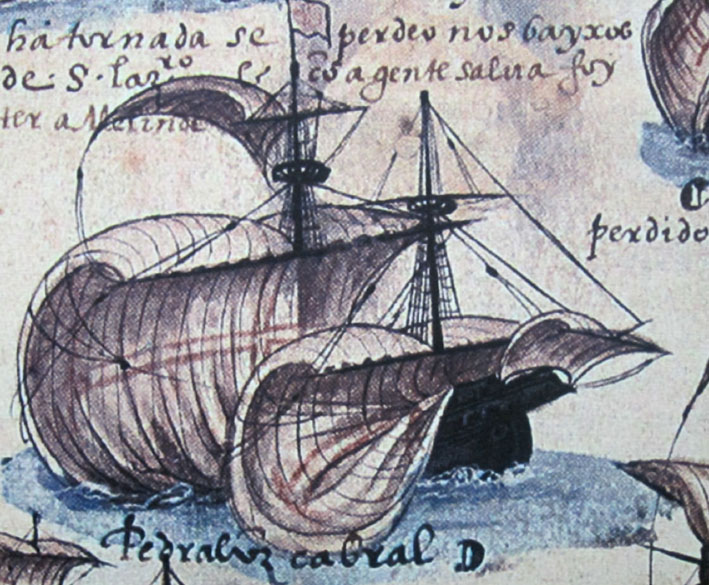 há tornada se perdeo nos bayxos
de · S · lazro cõ a gente salva foy
ter a Melinde
perdido
Pedralvrz cabral D